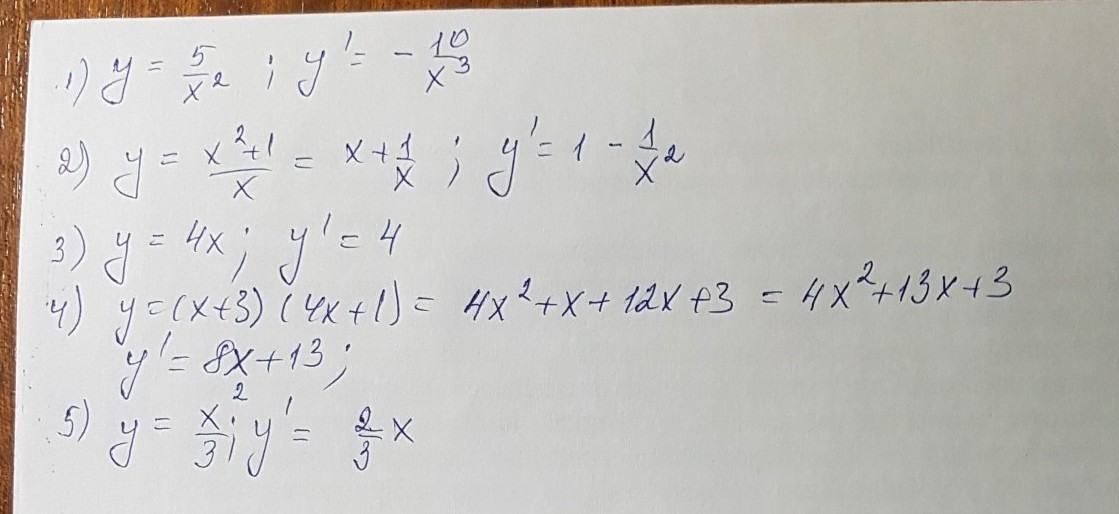 1) y = 5/x² ; y' = - 10/x³
2) y = (x²+1)/x = x + 1/x ; y' = 1 - 1/x²
3) y = 4x ; y' = 4
4) y = (x+3) (4x+1) = 4x² + x + 12x + 3 = 4x² + 13x + 3
y' = 8x + 13 ;
5) y = x²/3 ; y' = 2/3 x